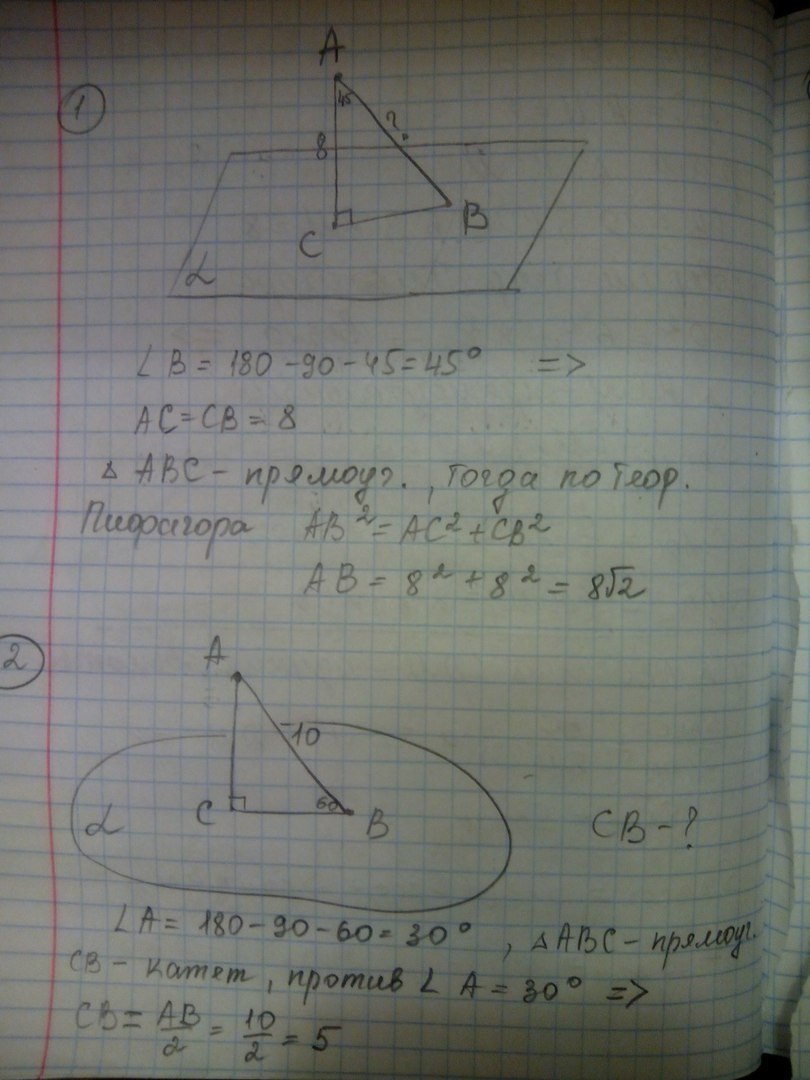 1
A
45
?
8
C
B
α
∠B = 180 - 90 - 45 = 45° =>
AC = CB = 8
△ ABC - прямоуг. , тогда по теор.
Пифагора AB² = AC² + CB²
AB = 8² + 8² = 8√2
2
A
10
C
60
B
α
CB - ?
∠A = 180 - 90 - 60 = 30° , △ABC - прямоуг.
CB - катет, против ∠ A = 30° =>
CB = AB/2 = 10/2 = 5